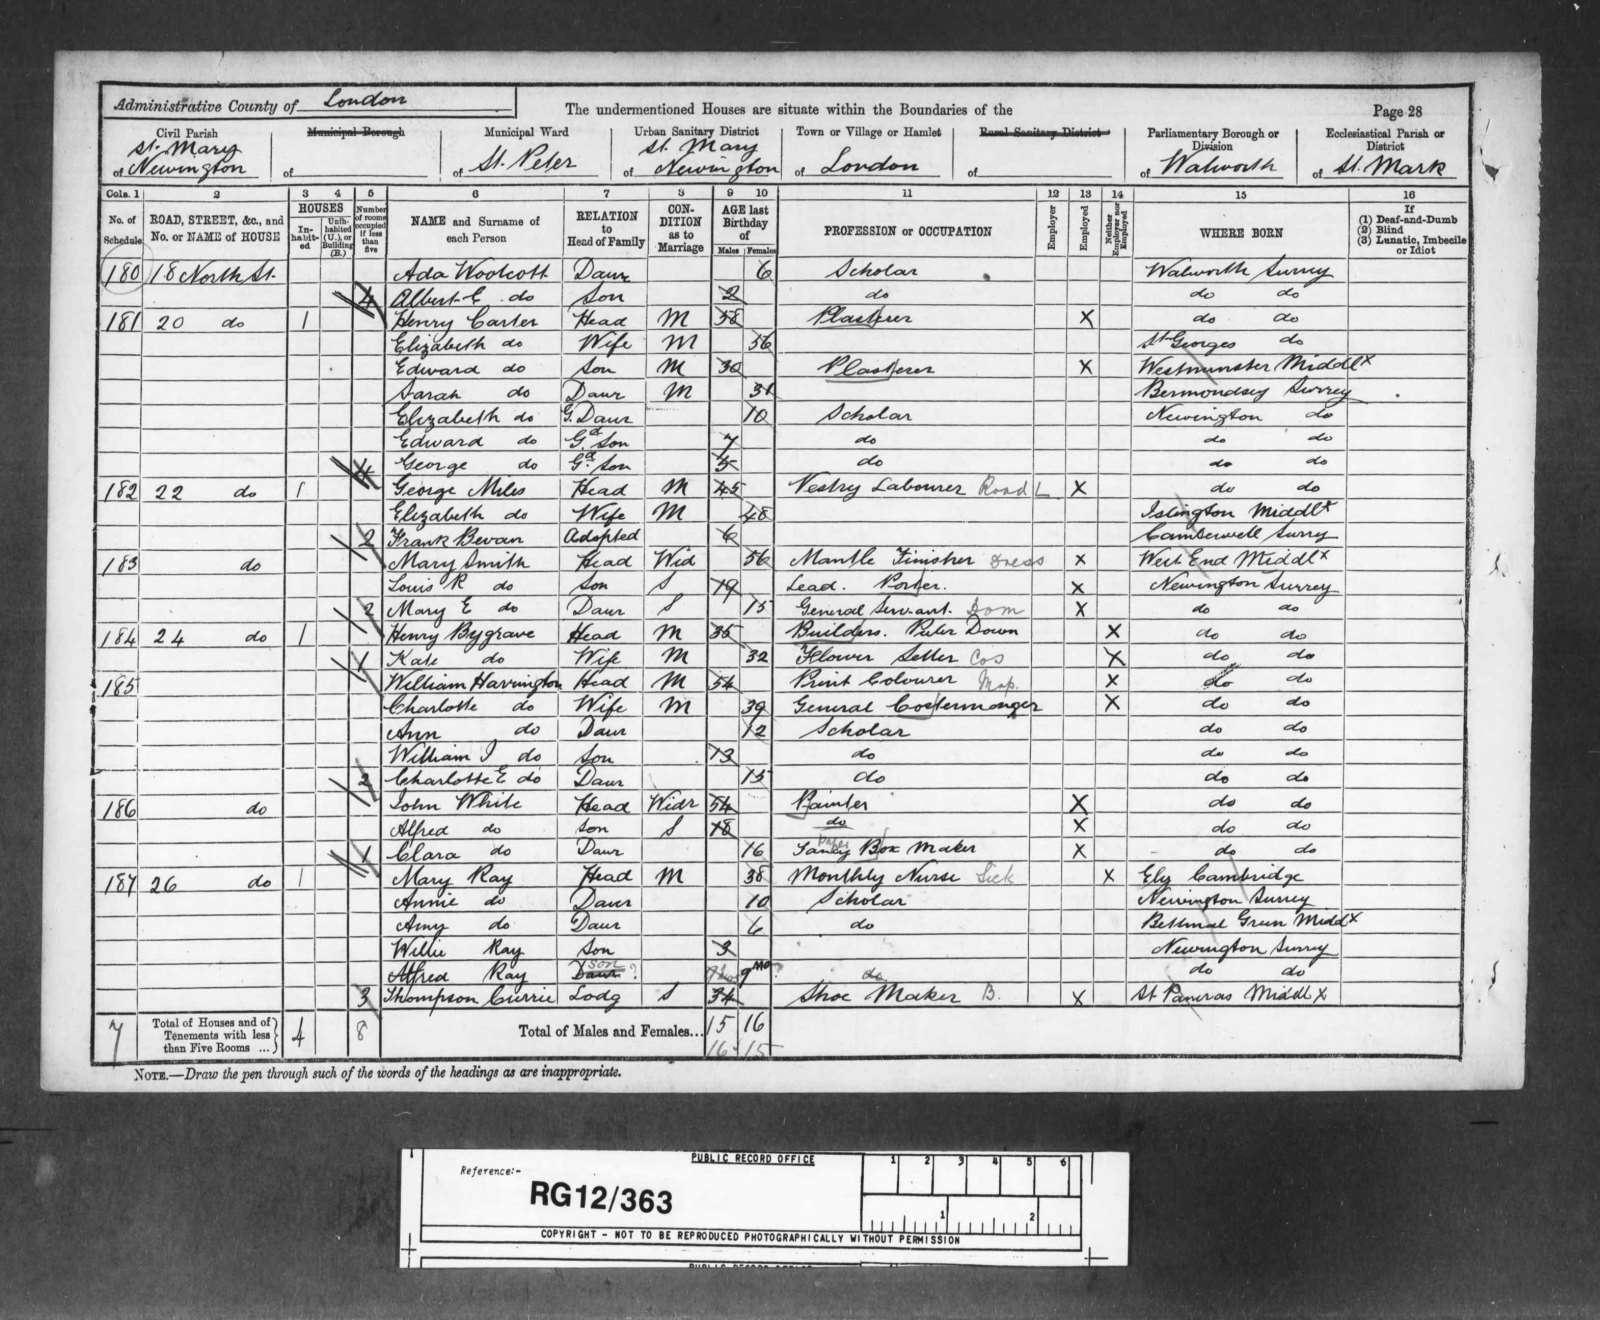 Administrative County of London
The undermentioned Houses are situate within the Boundaries of the
Page 28
Civil Parish of St. Mary Newington
Municipal Borough of
Municipal Ward of St. Peter
Urban Sanitary District of St. Mary Newington
Town or Village or Hamlet of London
Rural Sanitary District of
Parliamentary Borough or Division of Walworth
Ecclesiastical Parish or District of St. Mark
Cols. 1 2 3 4 5 6 7 8 9 10 11 12 13 14 15 16
No. of Schedule
ROAD, STREET, &c., and No. or NAME of HOUSE
HOUSES
Inhabited
Uninhabited (U.), or Building (B.)
Number of rooms occupied if less than five
NAME and Surname of each Person
RELATION to Head of Family
CONDITION as to Marriage
AGE last Birthday of
Males Females
PROFESSION or OCCUPATION
Employer
Employed
Neither Employer nor Employed
WHERE BORN
If
(1) Deaf-and-Dumb
(2) Blind
(3) Lunatic, Imbecile or Idiot
180 18 North St. Ada Woolcott Daur 6 Scholar Walworth Surrey
4 Albert E do Son 2 do do do
181 20 do 1 Henry Carter Head M 58 Plasterer X do do
Elizabeth do Wife M 56 St Georges do
Edward do Son M 30 Plasterer X Westminster Middlx
Sarah do Daur M 31 Bermondsey Surrey
Elizabeth do G. Daur 10 Scholar Newington do
Edward do Gd Son 7 do do do
4 George do Gd Son 5 do do do
182 22 do 1 George Miles Head M 45 Vestry Labourer Road L X do do
Elizabeth do Wife M 48 Islington Middlx
2 Frank Bevan Adopted 6 Camberwell Surrey
183 do Mary Smith Head Wid 56 Mantle Finisher Dress X West End Middlx
Louis R do Son S 19 Lead. Porter. X Newington Surrey
2 Mary E do Daur S 15 General Servant. Dom X do do
184 24 do 1 Henry Bygrave Head M 35 Builders. Puler Down X do do
1 Kate do Wife M 32 Flower Seller Cos X do do
185 William Harrington Head M 54 Print Colourer Map. X do do
Charlotte do Wife M 39 General Costermonger X do do
Ann do Daur 12 Scholar do do
William J do Son 13 do do do
2 Charlotte E do Daur 15 do do do
186 do John White Head Widr 54 Painter X do do
Alfred do Son S 18 do X do do
1 Clara do Daur 16 Fancy Box Maker X do do
187 26 do 1 Mary Ray Head M 38 Monthly Nurse Sick X Ely Cambridge
Annie do Daur 10 Scholar Newington Surrey
Amy do Daur 6 do Bethnal Green Middx
Willie Ray Son 3 Newington Surrey
Alfred Ray Daur Son ? 9 mo do do do
3 Thompson Currie Lodg S 34 Shoe Maker B. X St Pancras Middlx
7 Total of Houses and of Tenements with less than Five Rooms ... 4 8 Total of Males and Females... 15 16
16 15
NOTE.—Draw the pen through such of the words of the headings as are inappropriate.
PUBLIC RECORD OFFICE
Reference:-
RG12/363
1 2 3 4 5 6
1 2
COPYRIGHT - NOT TO BE REPRODUCED PHOTOGRAPHICALLY WITHOUT PERMISSION